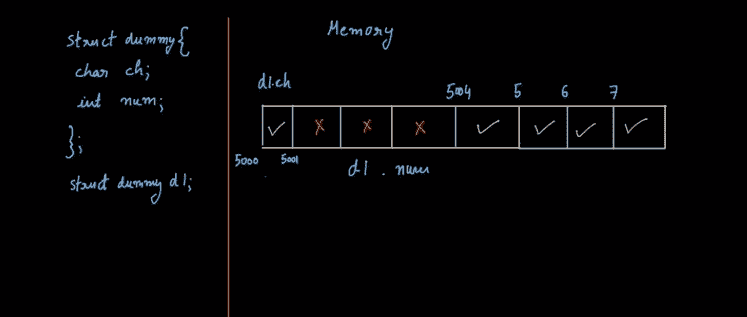 struct dummy{
char ch;
int num;
};
struct dummy d1;
Memory
d1.ch
5004 5 6 7
✓ x x x ✓ ✓ ✓ ✓
5000 5001
d1 . num